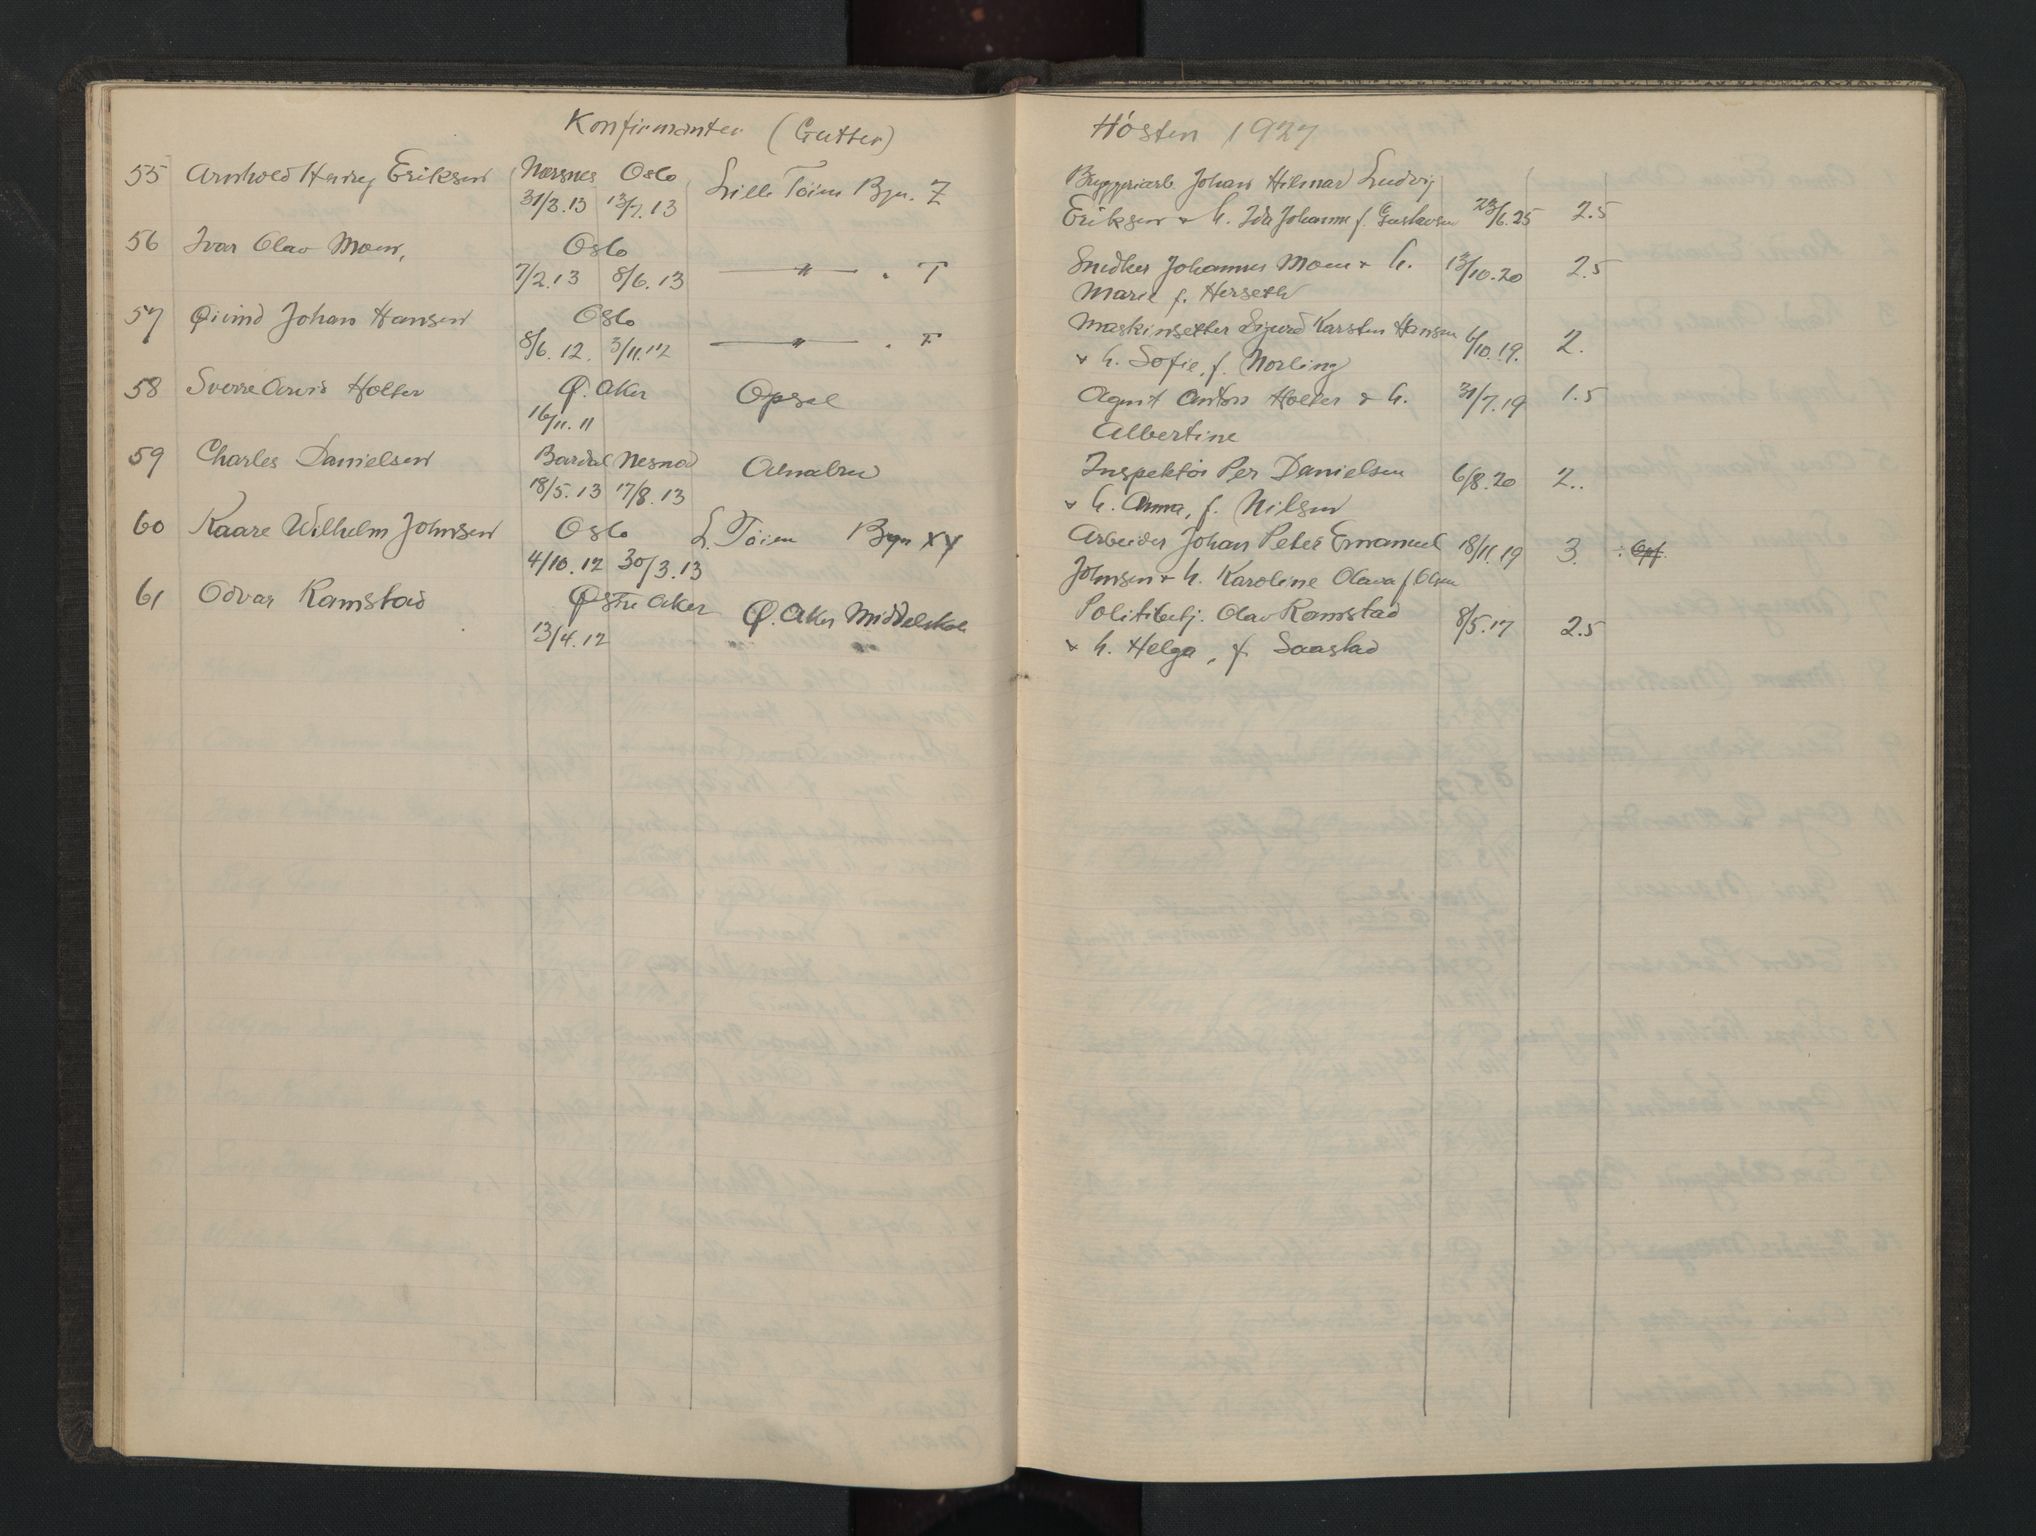 Konfirmanter (Gutter) Høsten 1927
55 Arnhold Henry Eriksen Nærsnes Oslo Lille Töien Bgn. Z Bryggeriarb. Johan Hilmar Ludvig
31/3.13 13/7.13 Eriksen & h. Ida Johanne f. Gustavsen 23/6.25 2.5
56 Ivar Olav Moen, Oslo
7/2.13 8/6.13 — " — . T Snedker Johannes Moen & h. 13/10.20 2.5
Marie f. Herseth
57 Øivind Johan Hansen Oslo Maskinsetter Sigurd Karsten Hansen
8/6.12. 3/11.12 — " — . F & h. Sofie, f. Norling 6/10.19. 2.
58 Sverre Arvid Holter Ø. Aker Opsal Agent Anton Holter & h. 31/7.19 1.5
16/11.11 Albertine
59 Charles Danielsen Bardal Nesna Alnabru Inspektör Per Danielsen 6/8.20 2..
18/5.13 17/8.13 & h. Anna, f. Nilsen
60 Kaare Wilhelm Johnsen Oslo L. Töien Bgn XY Arbeider Johan Peter Emanuel 18/11.19 3.
4/10.12 30/3.13 Johnsen & h. Karoline Olava f. Olsen
61 Odvar Ramstad Østre Aker Ø. Aker Middelskole Politibetj. Olav Ramstad 8/5.17 2.5
13/4.12 & h. Helga, f. Saastad